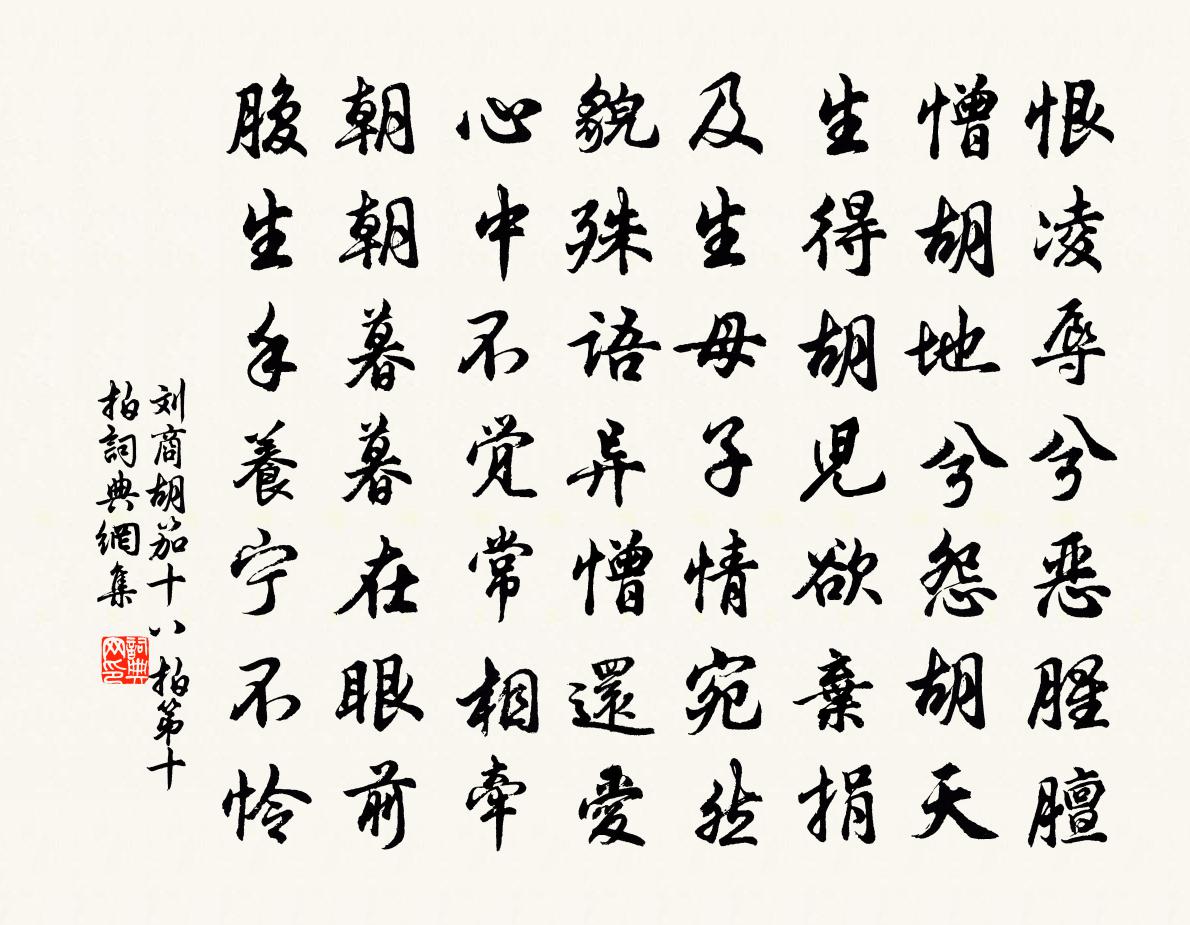 恨凌辱兮惡腥膻
憎胡地兮怨胡天
生得胡兒欲棄捐
及生母子情宛然
貌殊語异憎還愛
心中不觉常相牽
朝朝暮暮在眼前
腹生手養宁不怜
刘商胡笳十八拍第十
拍詞典網集
詞典
网印